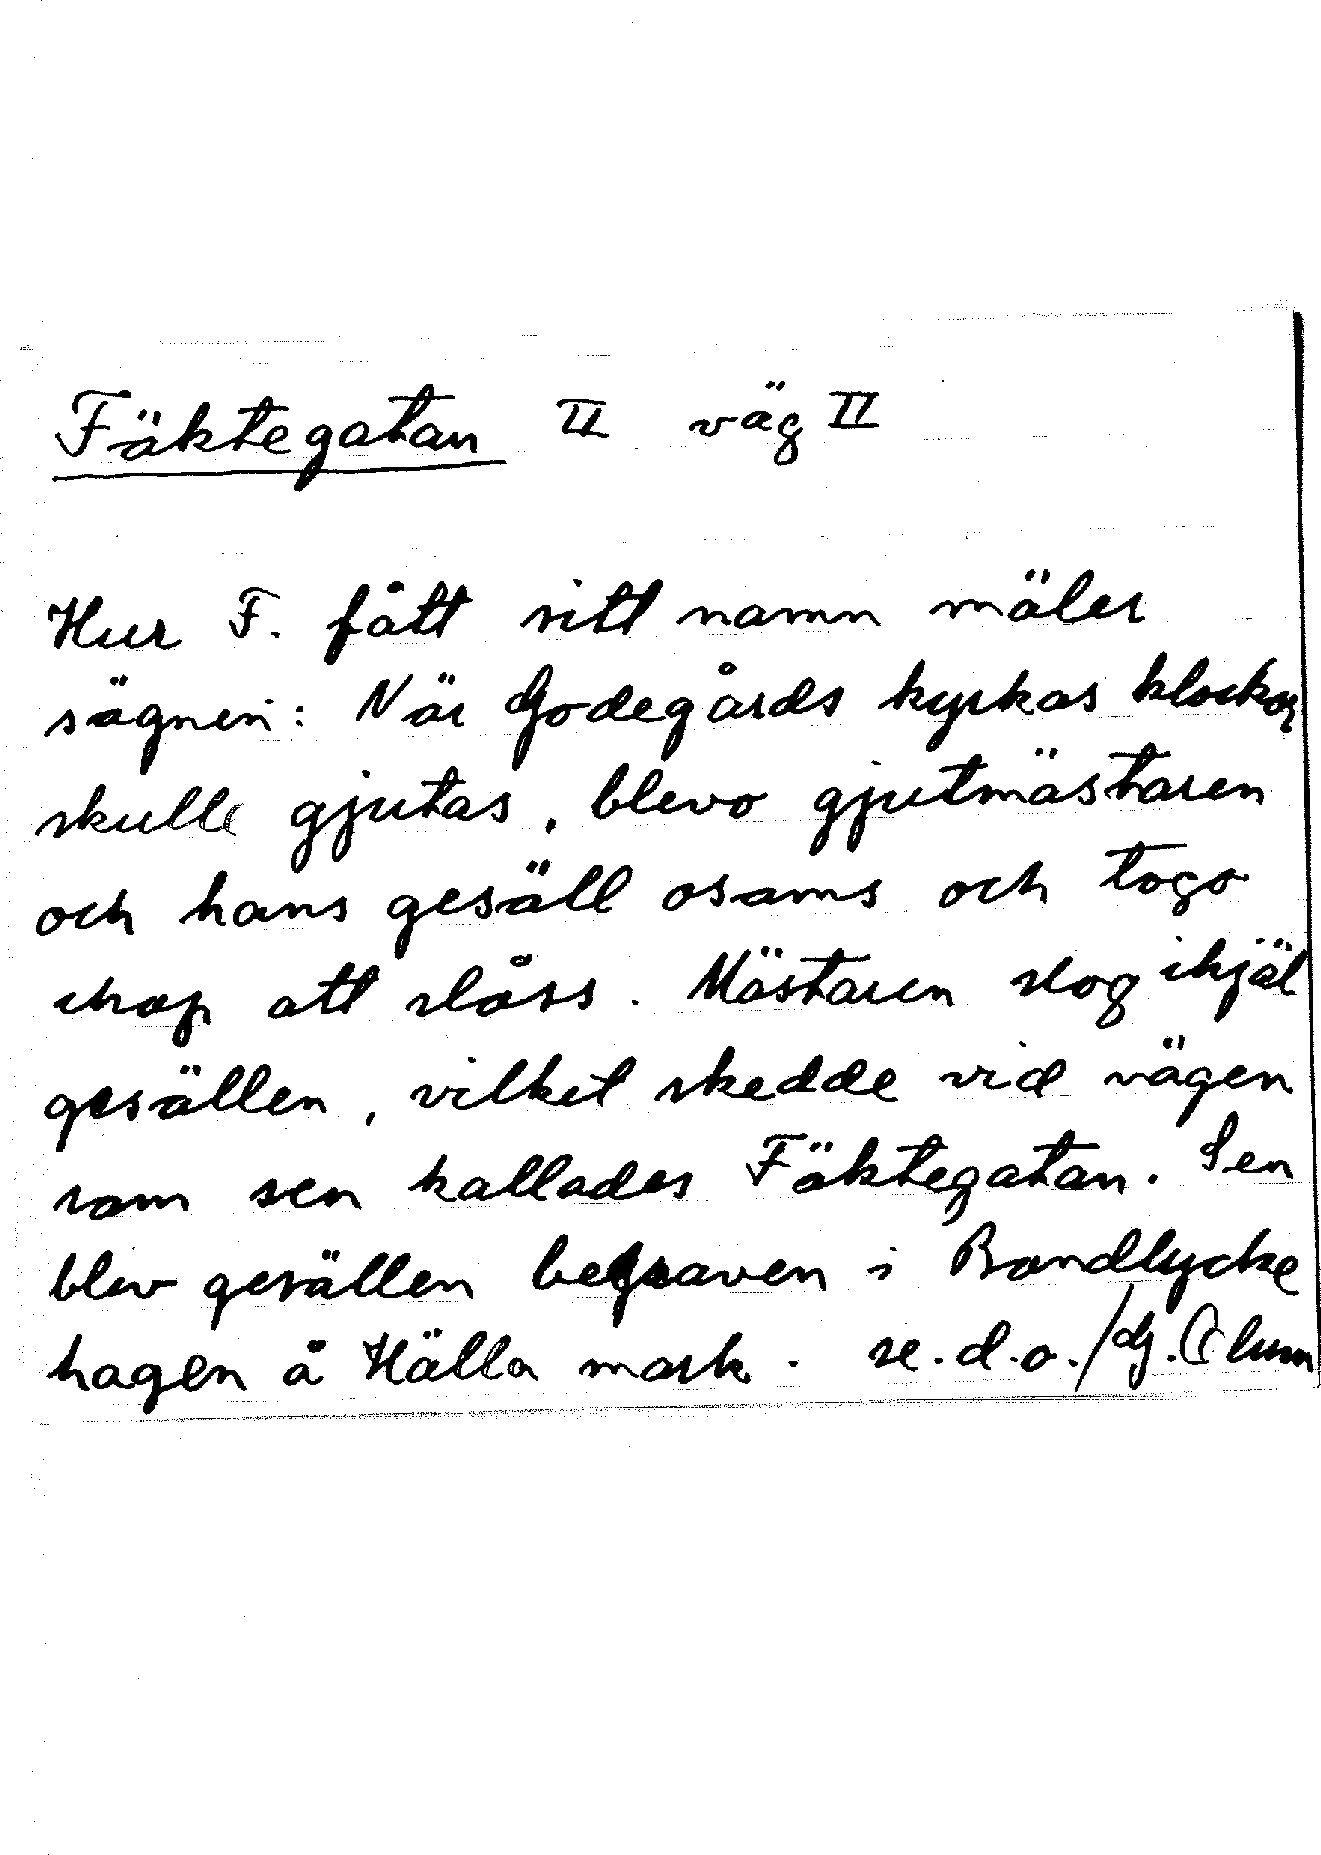 Fäktegatan II väg II
Hur F. fått sitt namn mäler
sägnen: När Godegårds kyrkas klockor
skulle gjutas, blevo gjutmästaren
och hans gesäll osams och togo
ihop att slåss. Mästaren slog ihjäl
gesällen, vilket skedde vid vägen
som sen kallades Fäktegatan. Sen
blev gesällen begraven i Bandlycke
hagen å Hälla mark. se.d.o./